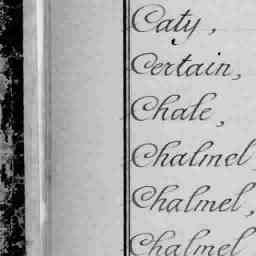 Caty,
Certain,
Chale,
Chalmel,
Chalmel,
Chalmel